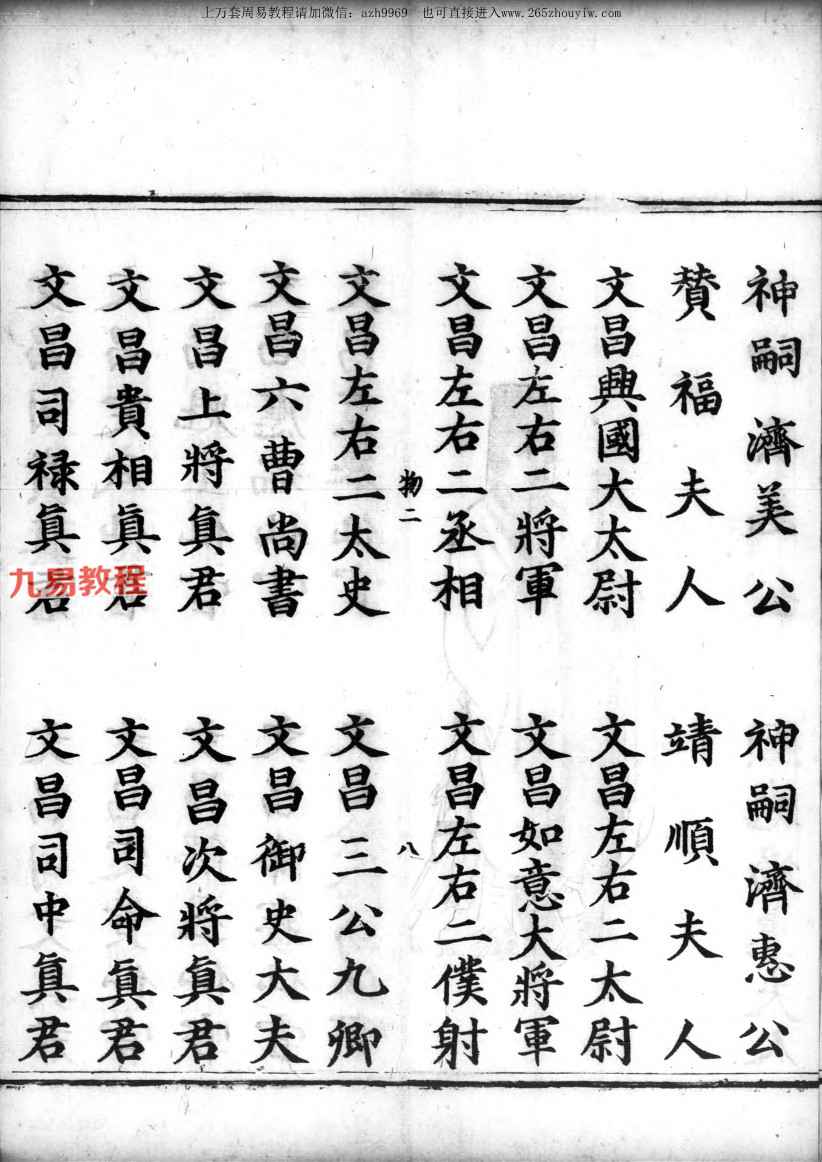 上万套周易教程请加微信：azh9969 也可直接进入www.265zhouyiw.com
神嗣濟美公 神嗣濟惠公
贊福夫人 靖順夫人
文昌興國大太尉 文昌左右二太尉
文昌左右二將軍 文昌如意大將軍
文昌左右二丞相 文昌左右二僕射
物二 八
文昌左右二太史 文昌三公九卿
文昌六曹尚書 文昌御史大夫
文昌上將眞君 文昌次將眞君
文昌貴相眞君 文昌司命眞君
文昌司禄眞君 文昌司中眞君
九易教程